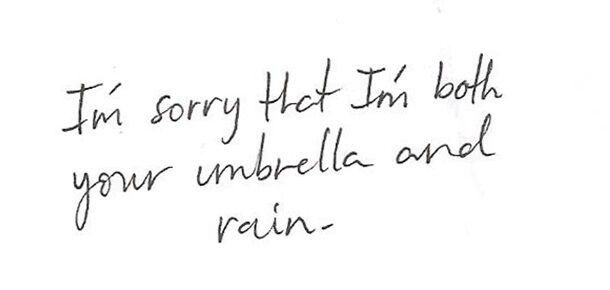 I'm sorry that I'm both
your umbrella and
rain-